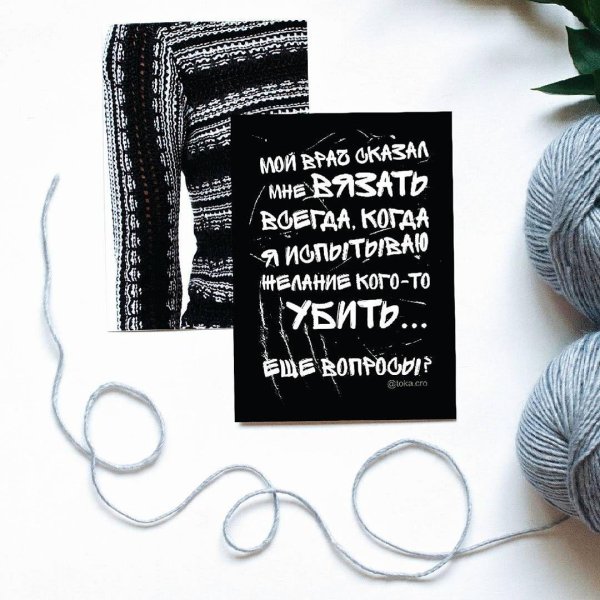 МОЙ ВРАЧ СКАЗАЛ
МНЕ ВЯЗАТЬ
ВСЕГДА, КОГДА
Я ИСПЫТЫВАЮ
ЖЕЛАНИЕ КОГО-ТО
УБИТЬ...
ЕЩЕ ВОПРОСЫ?
@toka.cro